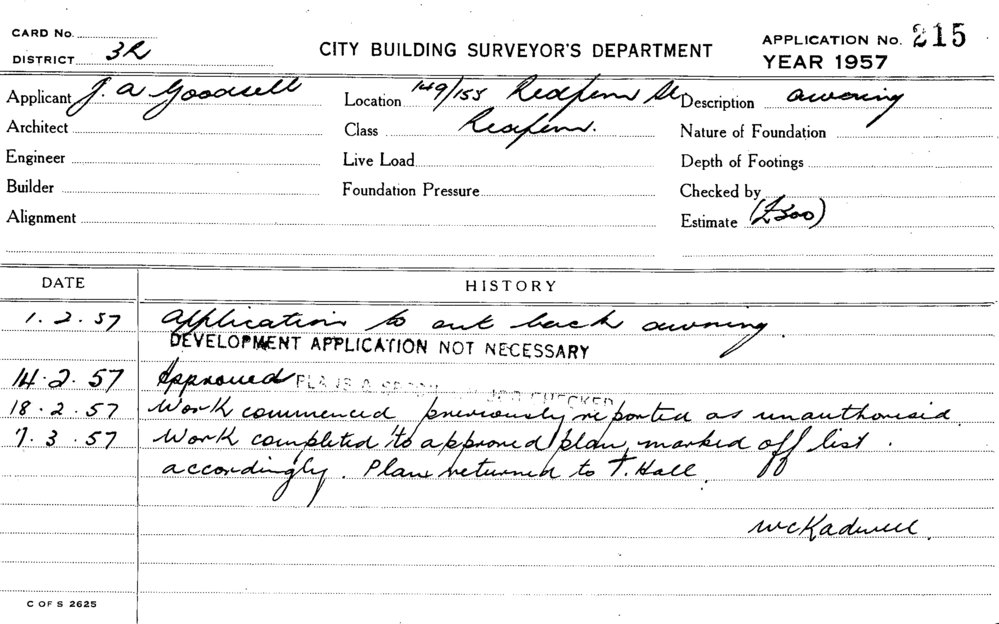 CARD No.
DISTRICT 3R
CITY BUILDING SURVEYOR'S DEPARTMENT
APPLICATION No. 215
YEAR 1957
Applicant J. A Goodsell
Location 149/155 Redfern St
Description awning
Architect
Class Redfern.
Nature of Foundation
Engineer
Live Load
Depth of Footings
Builder
Foundation Pressure
Checked by
Alignment
Estimate (£300)
DATE
HISTORY
1.2.57 Application to cut back awning.
DEVELOPMENT APPLICATION NOT NECESSARY
14.2.57 Approved PLANS & CHECKED
18.2.57 Work commenced previously reported as unauthorised
7.3.57 Work completed to approved plan, marked off list
accordingly. Plan returned to T. Hall.
WCKadwell.
C OF S 2625